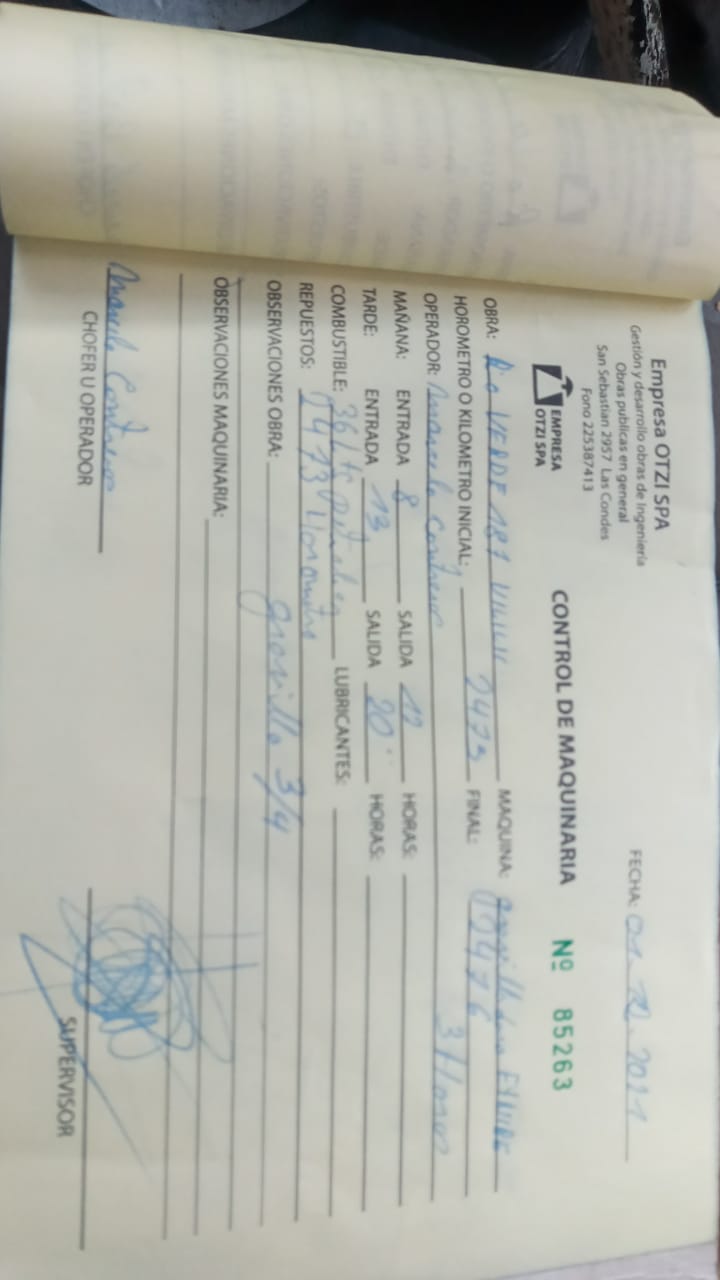 Empresa OTZI SPA
Gestión y desarrollo obras de Ingeniería
Obras publicas en general
San Sebastian 2957 Las Condes
Fono 225387413
EMPRESA
OTZI SPA
FECHA: 01. 12. 2021
CONTROL DE MAQUINARIA Nº 85263
OBRA: Rio VERDE 181 MAQUINA:
HOROMETRO O KILOMETRO INICIAL: 2473 FINAL: 2476
3 Horas
OPERADOR: Marcelo Contreras
MAÑANA: ENTRADA 8 SALIDA 12 HORAS:
TARDE: ENTRADA 13 SALIDA 20 HORAS:
COMBUSTIBLE: 36 Lts petroleo LUBRICANTES:
REPUESTOS: 2473 Horometro
OBSERVACIONES OBRA: gravilla 3/4
OBSERVACIONES MAQUINARIA:
Marcelo Contreras
CHOFER U OPERADOR
SUPERVISOR